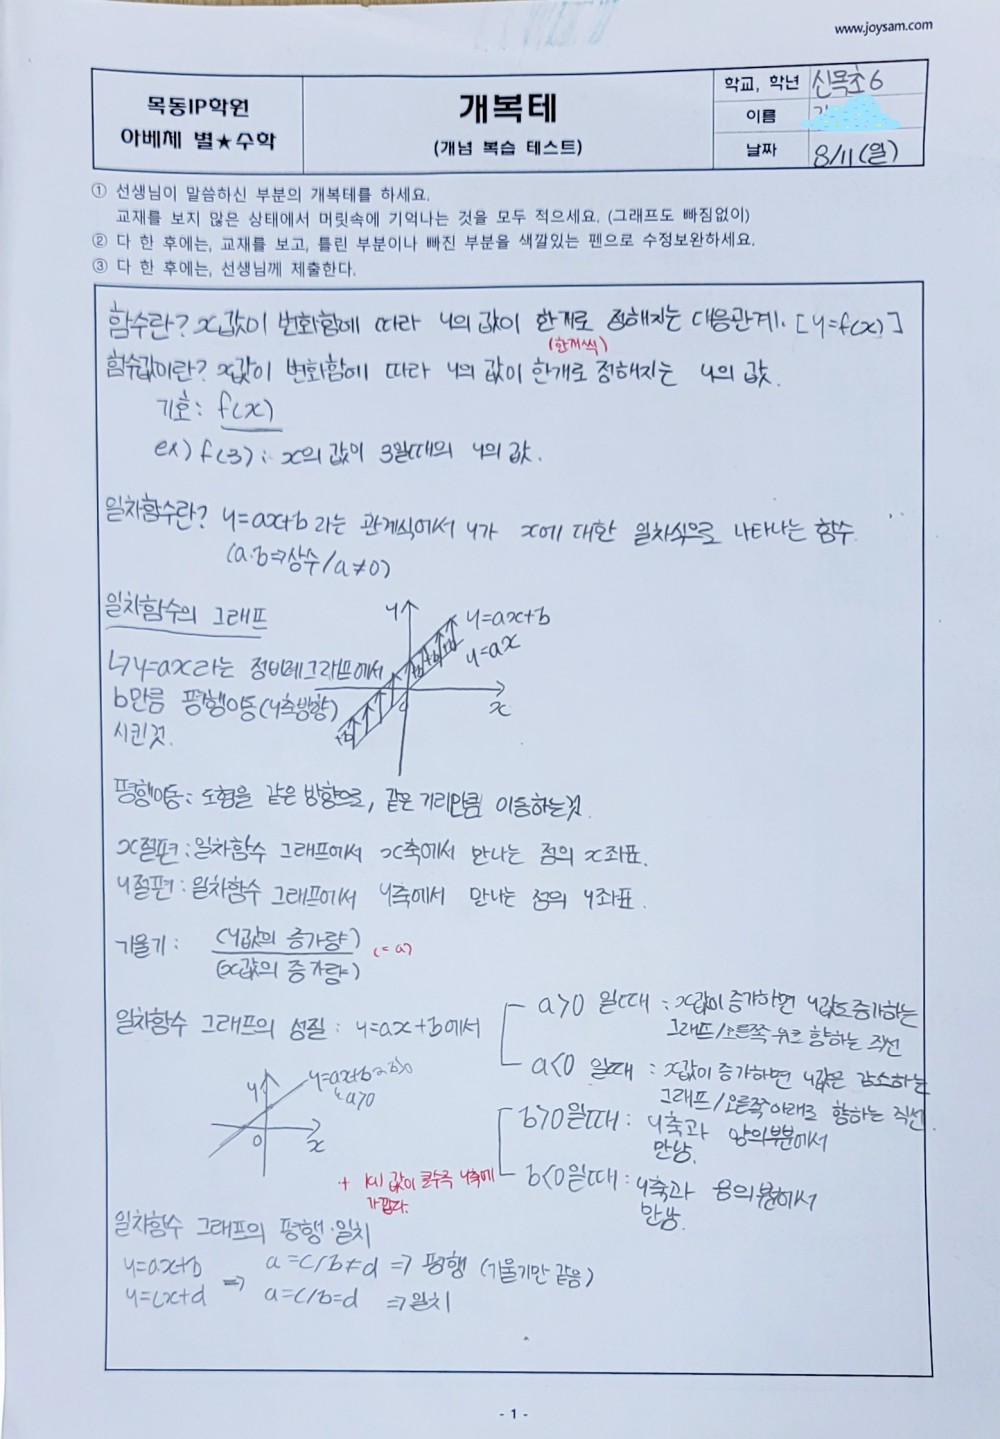 www.joysam.com
목동IP학원
아베체 별★수학
개복테
(개념 복습 테스트)
학교, 학년 신목초 6
이름
날짜 8/11(일)
① 선생님이 말씀하신 부분의 개복테를 하세요.
교재를 보지 않은 상태에서 머릿속에 기억나는 것을 모두 적으세요. (그래프도 빠짐없이)
② 다 한 후에는, 교재를 보고, 틀린 부분이나 빠진 부분을 색깔있는 펜으로 수정보완하세요.
③ 다 한 후에는, 선생님께 제출한다.
함수란? x값이 변화함에 따라 y의 값이 한개로 정해지는 대응관계. [y=f(x)]
(한개씩)
함수값이란? x값이 변화함에 따라 y의 값이 한개로 정해지는 y의 값.
기호: f(x)
ex) f(3): x의 값이 3일때의 y의 값.
일차함수란? y=ax+b 라는 관계식에서 y가 x에 대한 일차식으로 나타나는 함수.
(a.b⇒상수/a≠0)
일차함수의 그래프
y
y=ax+b
y=ax
↳y=ax라는 정비례그래프에서
b만큼 평행이동(y축방향)
시킨것.
x
평행이동: 도형을 같은 방향으로, 같은 거리만큼 이동하는것.
x절편: 일차함수 그래프에서 x축에서 만나는 점의 x좌표.
y절편: 일차함수 그래프에서 y축에서 만나는 점의 y좌표.
기울기: (y값의 증가량)
(x값의 증가량)
(=a)
일차함수 그래프의 성질: y=ax+b에서
a>0 일때: x값이 증가하면 y값도 증가하는
그래프/오른쪽 위로 향하는 직선
a<0 일때: x값이 증가하면 y값은 감소하는
그래프/오른쪽 아래로 향하는 직선.
b>0일때: y축과 양의부분에서
만남.
b<0일때: y축과 음의부분에서
만남.
y
y=ax+b→b>0
↳a>0
0
x
+ |a| 값이 클수록 y축에
가깝다.
일차함수 그래프의 평행·일치
y=ax+b
y=cx+d
⇒
a=c/b≠d ⇒ 평행 (기울기만 같음)
a=c/b=d ⇒일치
- 1 -